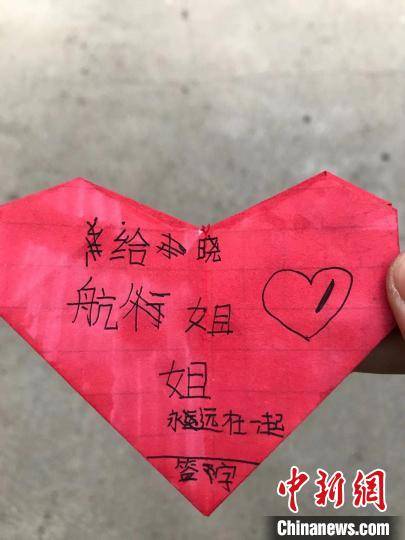 给晓
航 姐
姐
永远在一起
签字
中新网
Chinanews.com